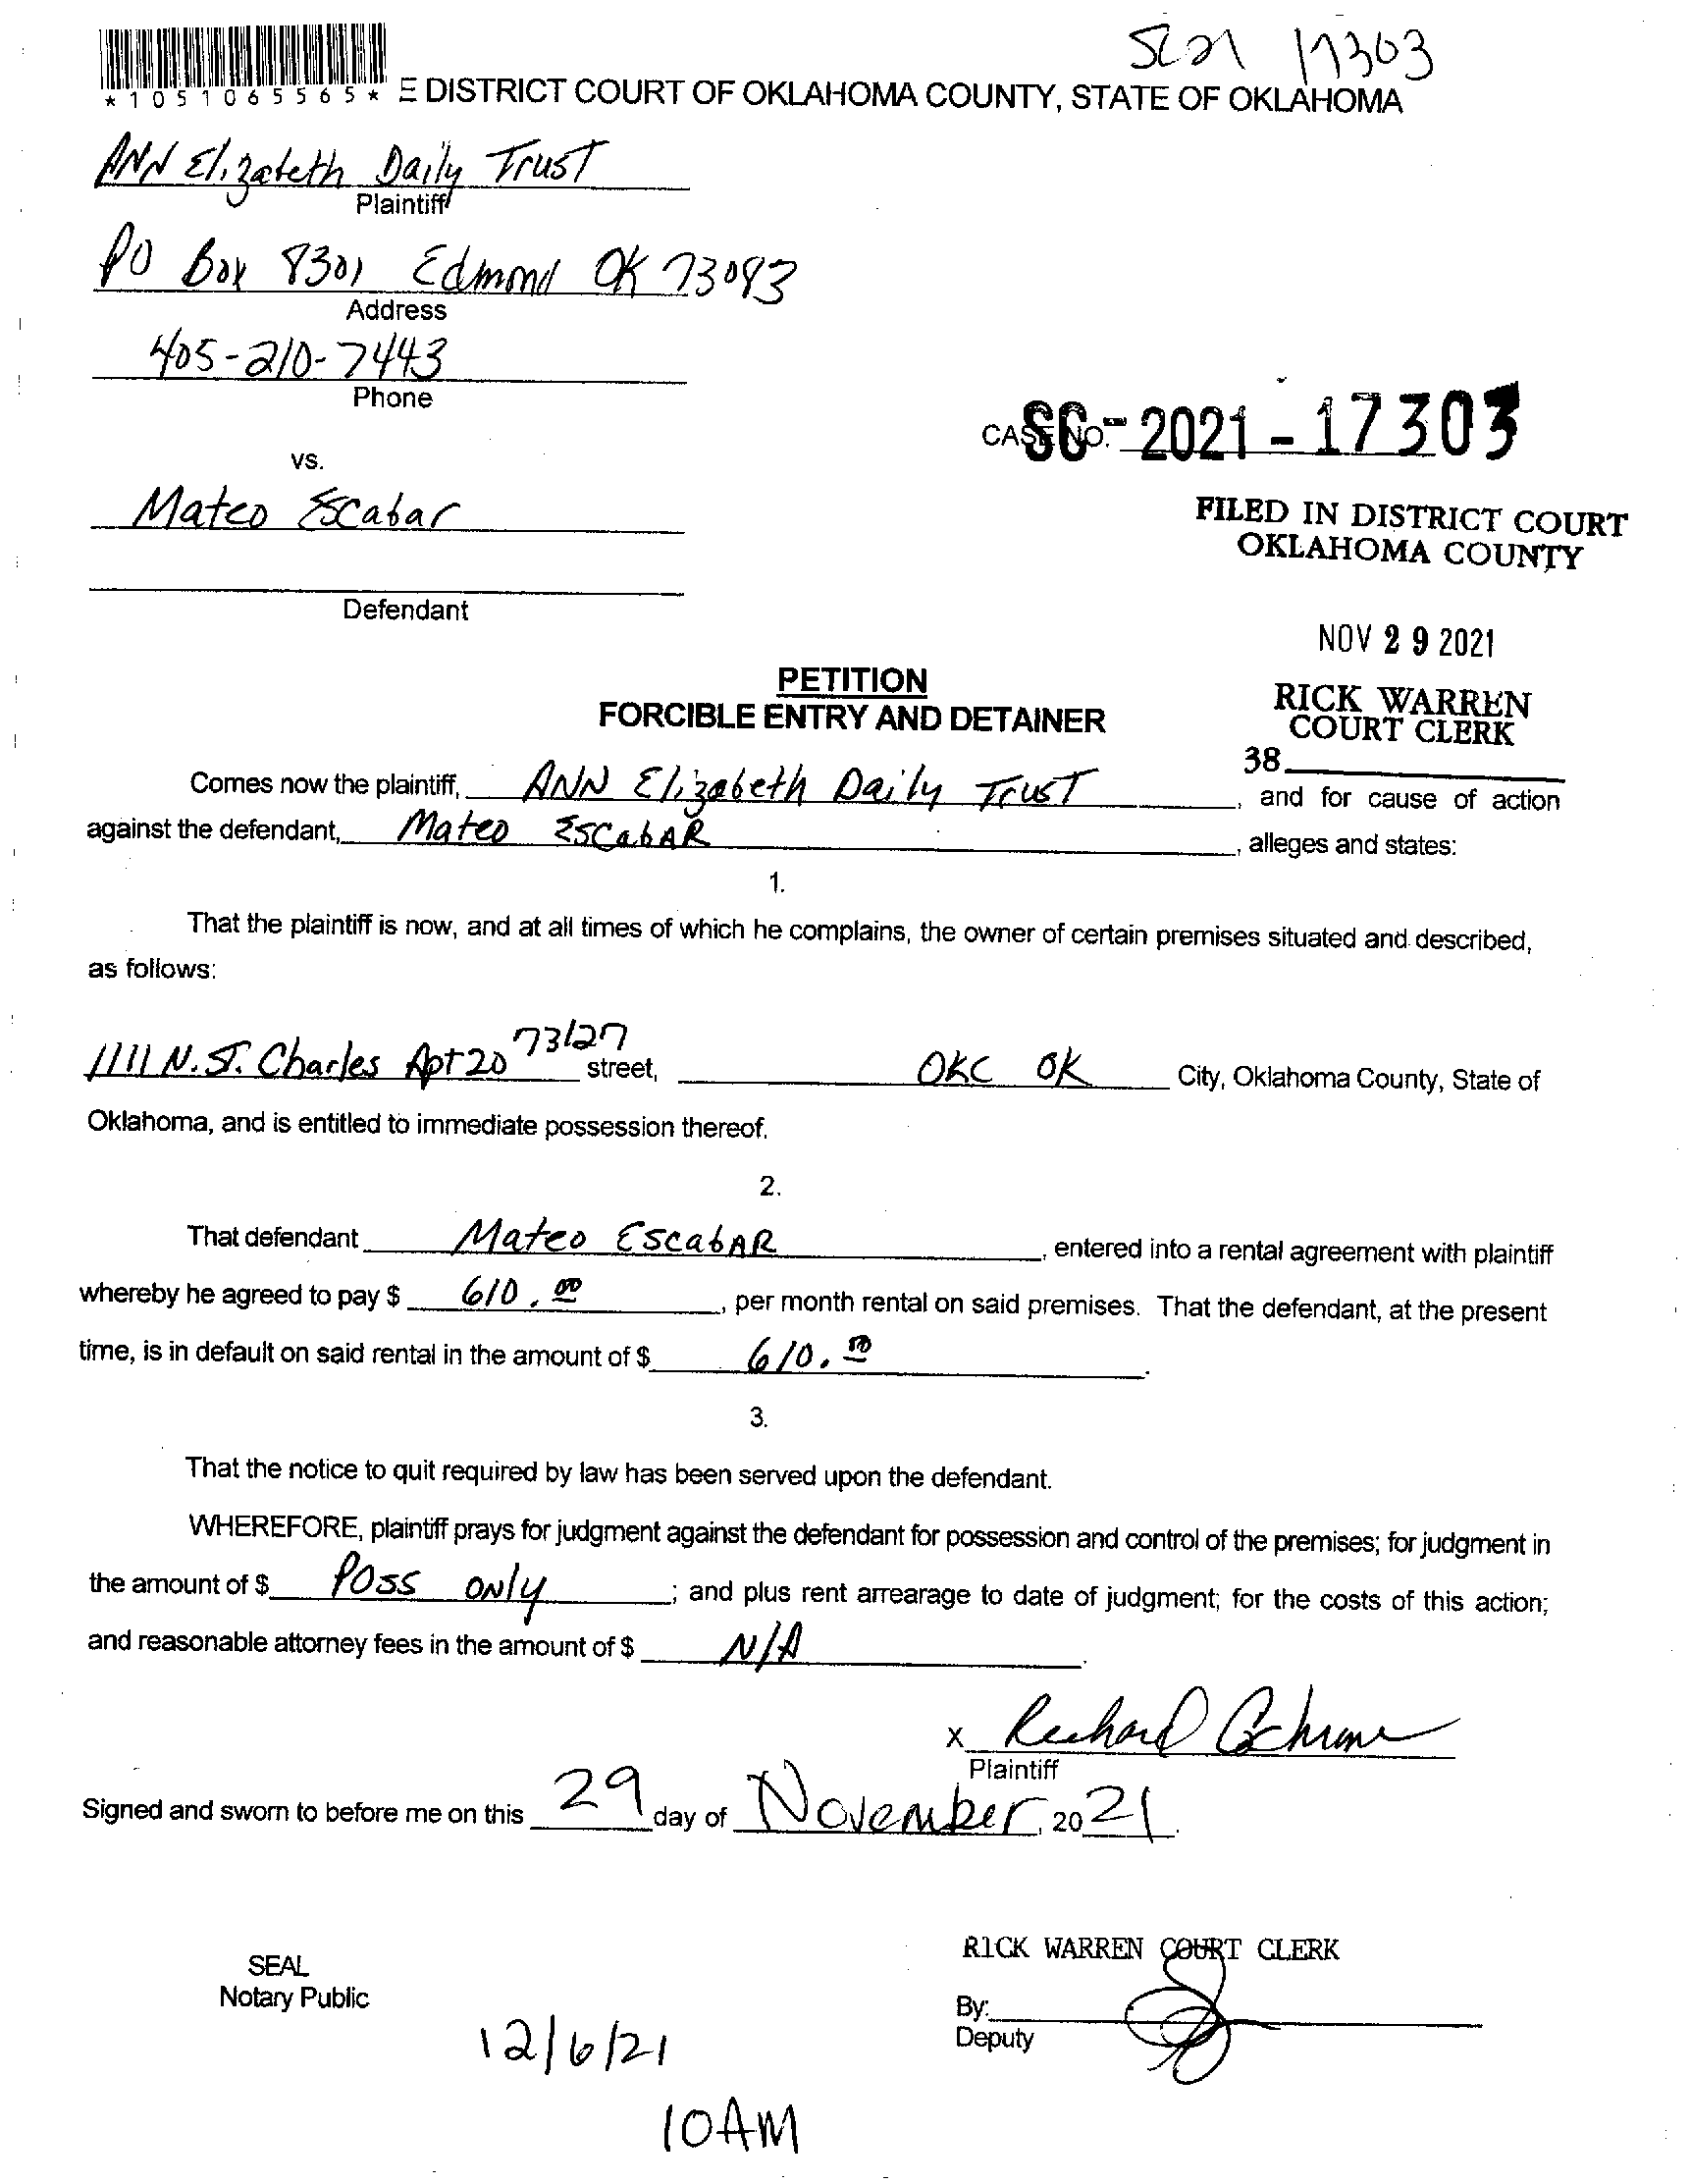 SC21 17303
*1051065565* E DISTRICT COURT OF OKLAHOMA COUNTY, STATE OF OKLAHOMA
ANN Elizabeth Daily Trust
Plaintiff
PO Box 8301 Edmond OK 73083
Address
405-210-7443
Phone
CASE NO. SC-2021-17303
vs.
Mateo Escabar
FILED IN DISTRICT COURT
OKLAHOMA COUNTY
Defendant
NOV 29 2021
PETITION
FORCIBLE ENTRY AND DETAINER
RICK WARREN
COURT CLERK
38
Comes now the plaintiff, ANN Elizabeth Daily Trust, and for cause of action
against the defendant, Mateo EscabAR, alleges and states:
1.
That the plaintiff is now, and at all times of which he complains, the owner of certain premises situated and described,
as follows:
1111 N. ST. Charles Apt 20 73127 street, OKC OK City, Oklahoma County, State of
Oklahoma, and is entitled to immediate possession thereof.
2.
That defendant Mateo EscabAR, entered into a rental agreement with plaintiff
whereby he agreed to pay $ 610.00, per month rental on said premises. That the defendant, at the present
time, is in default on said rental in the amount of $ 610.00.
3.
That the notice to quit required by law has been served upon the defendant.
WHEREFORE, plaintiff prays for judgment against the defendant for possession and control of the premises; for judgment in
the amount of $ POSS ONly; and plus rent arrearage to date of judgment; for the costs of this action;
and reasonable attorney fees in the amount of $ N/A.
X Richard Cochrane
Plaintiff
Signed and sworn to before me on this 29 day of November, 2021.
RICK WARREN COURT CLERK
SEAL
Notary Public
By:
Deputy
12/6/21
10AM